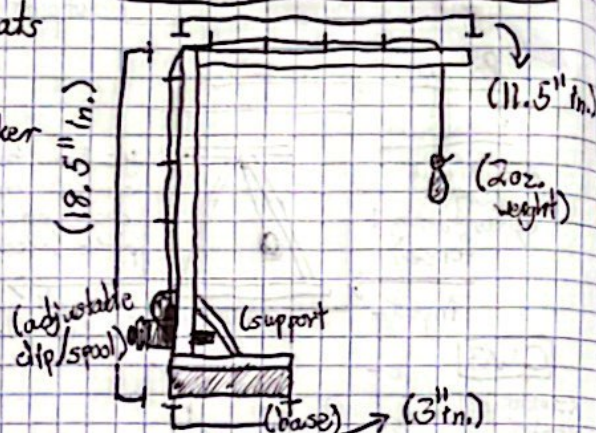 ats
ker
(18.5" in.)
(11.5" in.)
(2oz.
weight)
(adjustable
clip/spool)
(support
(base)
(3" in.)